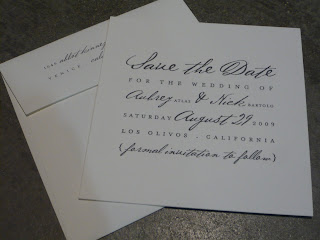 Save the Date
FOR THE WEDDING OF
Aubrey ATLAS & Nick BARTOLO
SATURDAY August 29 2009
LOS OLIVOS - CALIFORNIA
(formal invitation to follow)
VENICE